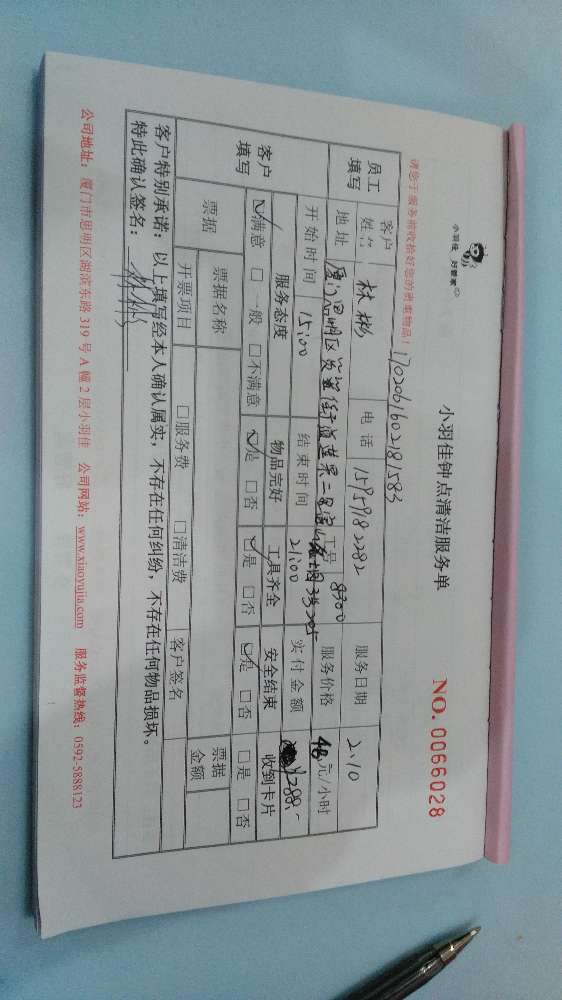 小羽佳 好管家
小羽佳钟点清洁服务单
NO. 0066028
请您于服务前收检好您的贵重物品!
170206160218 1583
员工填写 客户姓名 林彬 电话 15959182282 服务日期 2.10
地址 厦门思明区 街道 工号 8300 服务价格 48元/小时
开始时间 15:00 结束时间 21:00 实付金额 ¥288.-
客户填写 服务态度 物品完好 工具齐全 安全结束 收到卡片
☑满意 □一般 □不满意 ☑是 □否 ☑是 □否 ☑是 □否 □是 □否
票据 票据名称 客户签名 票据金额
开票项目 □服务费 □清洁费
客户特别承诺:以上填写经本人确认属实,不存在任何纠纷,不存在任何物品损坏。
特此确认签名:林彬
公司地址:厦门市思明区湖滨东路319号A幢2层小羽佳 公司网站:www.xiaoyujia.com 服务监督热线:0592-5888123